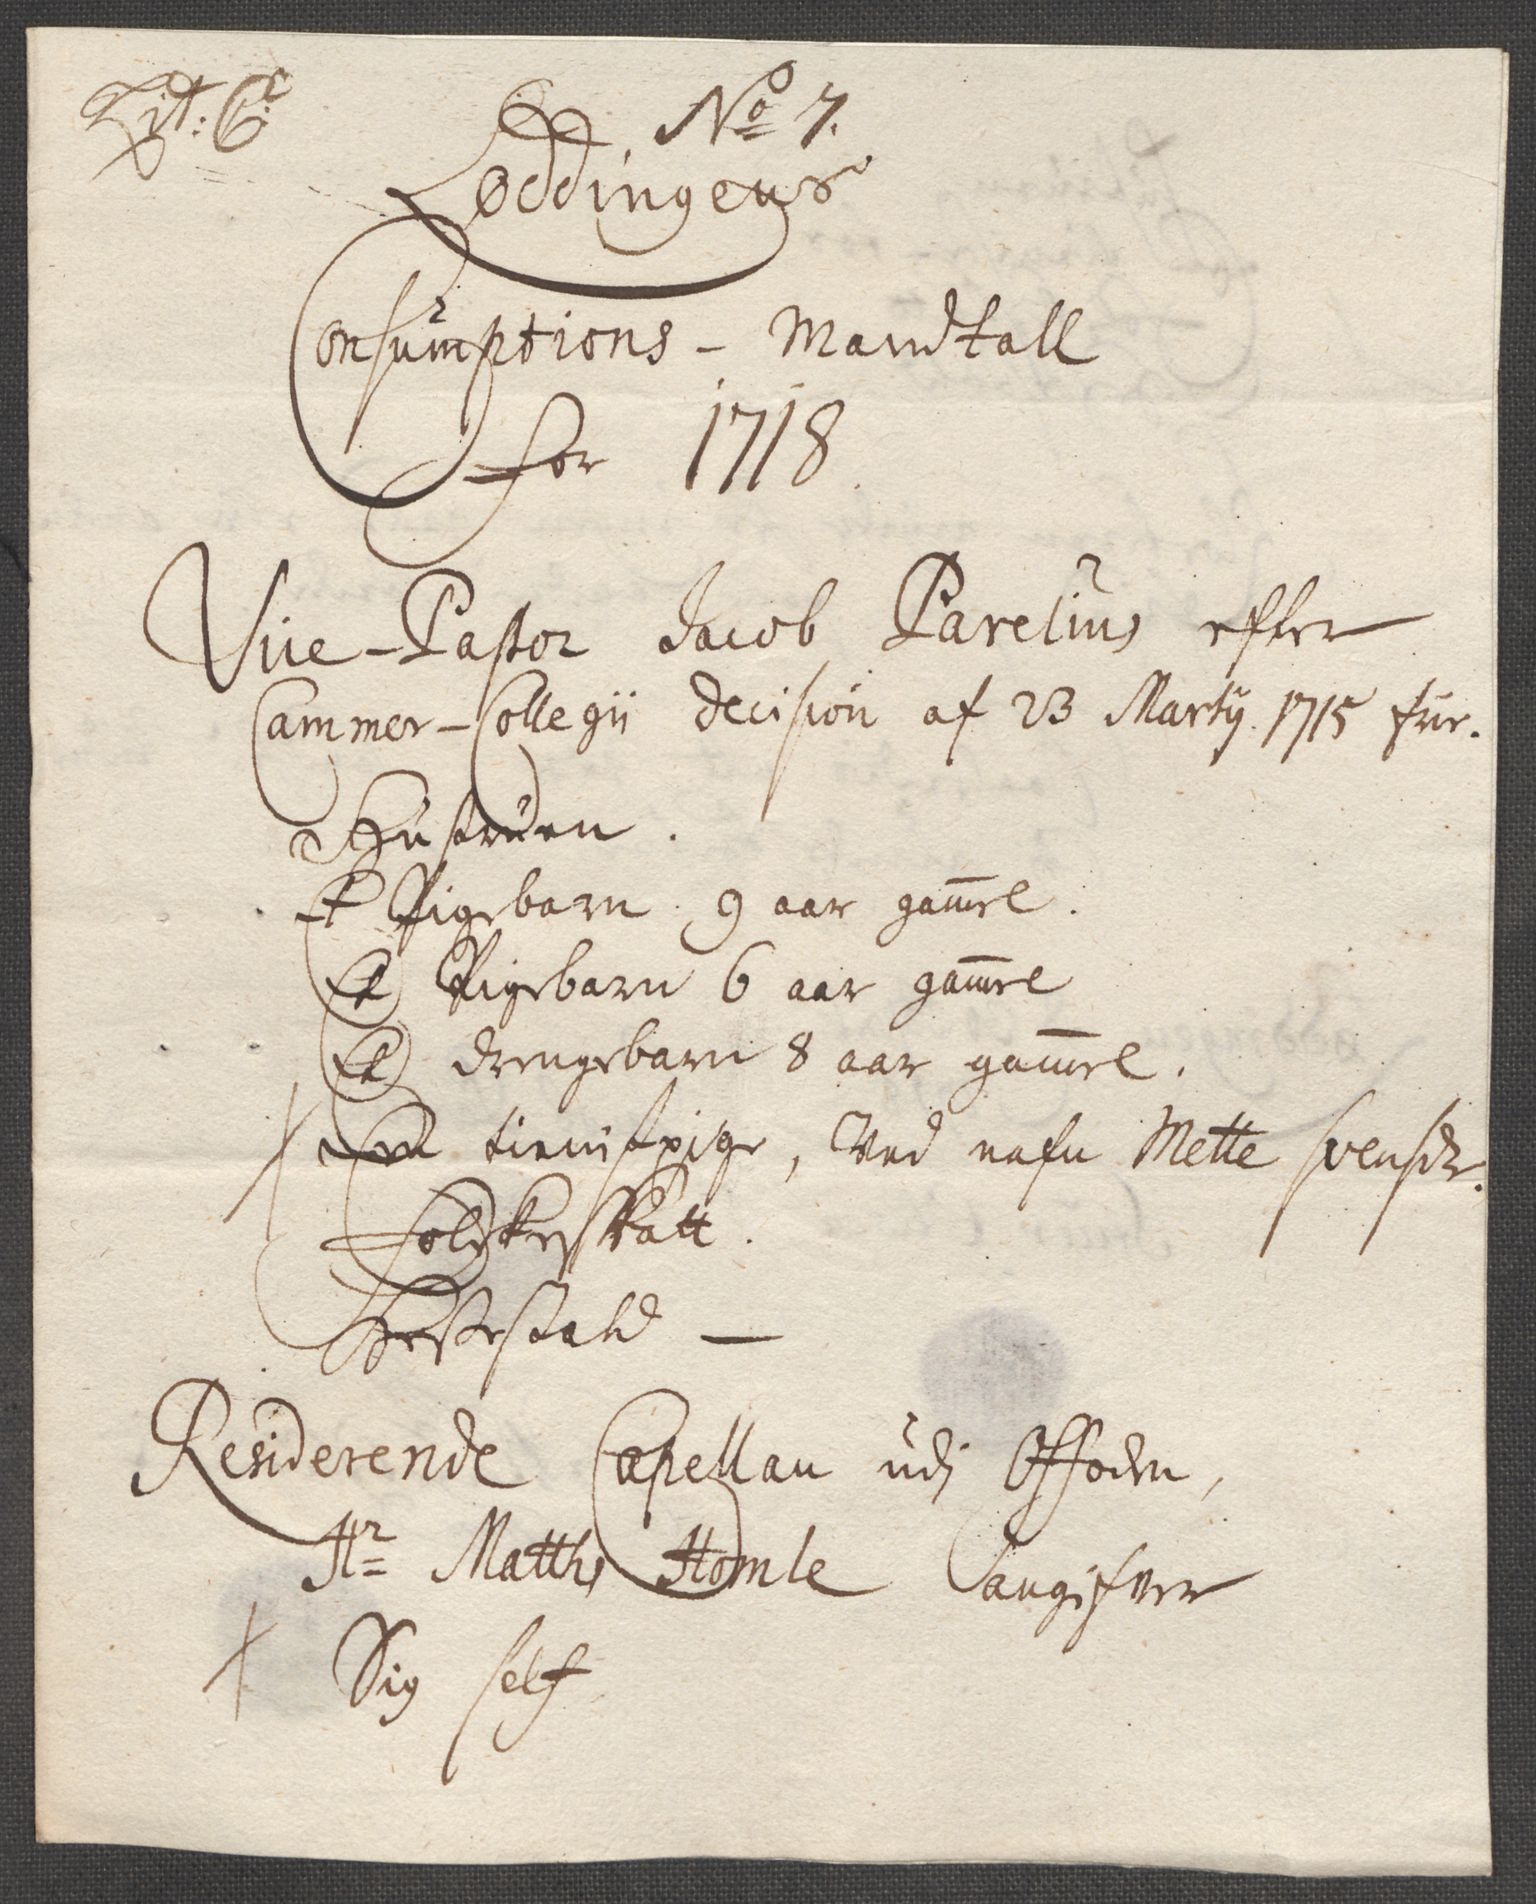 Lit: C
No 7.
Løddingens
Consumptions - Mandtall
for 1718.
Vice-Pastor Jacob Parelius efter
Cammer-Collegii decision af 23 Martij 1715 frie.
Hustruen.
Et Pigebarn. 9 aar gam̄el.
Et Pigebarn 6 aar gam̄el
Et drengebarn 8 aar gam̄el.
En tienistpige, Ved nafn Mette Svensdr.
Folckeskatt.
Hesteskatt —
Residerende Capellan udj Offoden,
Hr Matths Homle angifver
Sig self